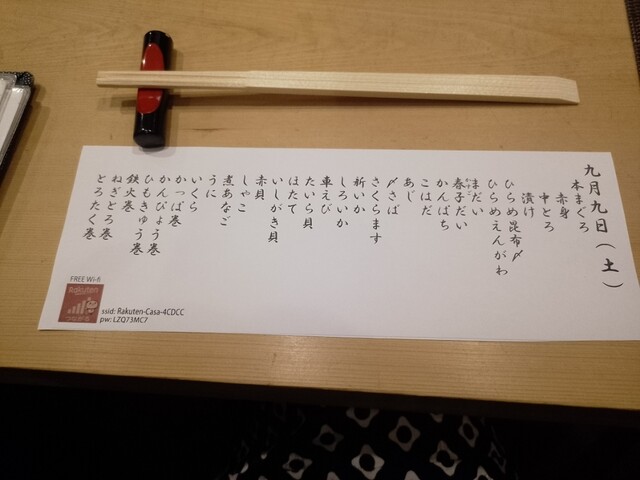 九月九日（土）
本まぐろ
赤身
中とろ
漬け
ひらめ昆布〆
ひらめえんがわ
まだい
春子だい
かんぱち
こはだ
あじ
〆さば
さくらます
新いか
しろいか
車えび
たいら貝
ほたて
いしがき貝
赤貝
しゃこ
煮あなご
うに
いくら
かっぱ巻
かんぴょう巻
ひもきゅう巻
鉄火巻
ねぎとろ巻
とろたく巻
FREE Wi-fi
Rakuten
つながる
ssid: Rakuten-Casa-4CDCC
pw: LZQ73MC7